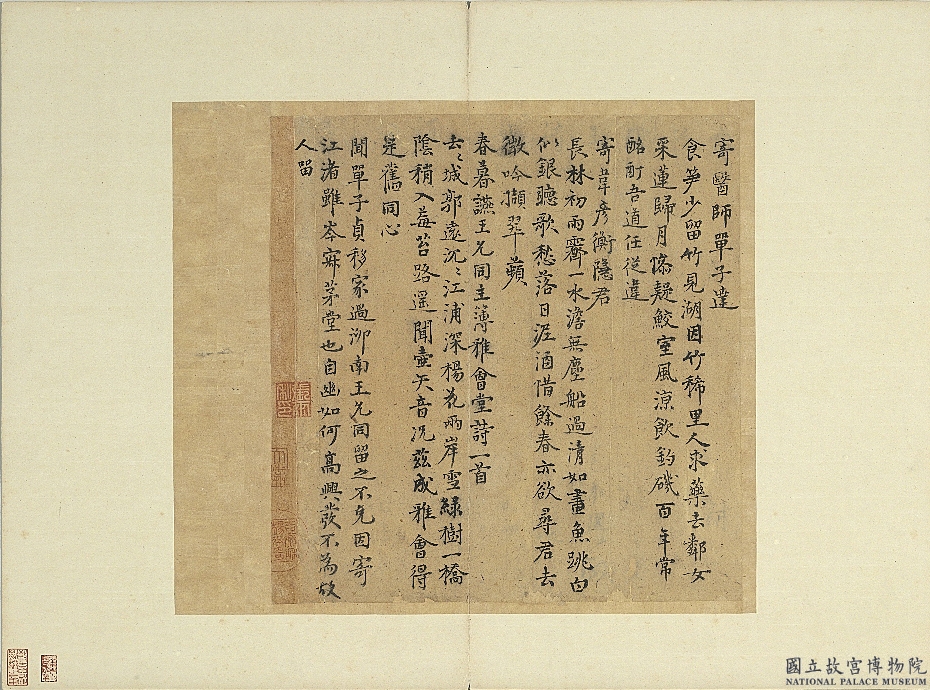 寄醫師單子達
食笋少留竹見湖因竹稀里人求藥去鄰女
采蓮歸月添疑鮫室風涼飲釣磯百年常
酩酊吾道任從違
寄韋彥衡隱君
長林初雨霽一水澹無塵船過清如畫魚跳白
似銀聽歌愁落日泥酒惜餘春亦欲尋君去
微吟擷翠蘋
春暮讌王允同主簿雅會堂詩一首
去〻城郭遠沉〻江浦深楊花兩岸雪綠樹一橋
陰稍入莓苔路遥聞壺矢音况茲成雅會得
是舊同心
聞單子貞移家過泖南王允同留之不克因寄
江渚雖岑寂茅堂也自幽如何高興發不為故
人留
國立故宮博物院
NATIONAL PALACE MUSEUM